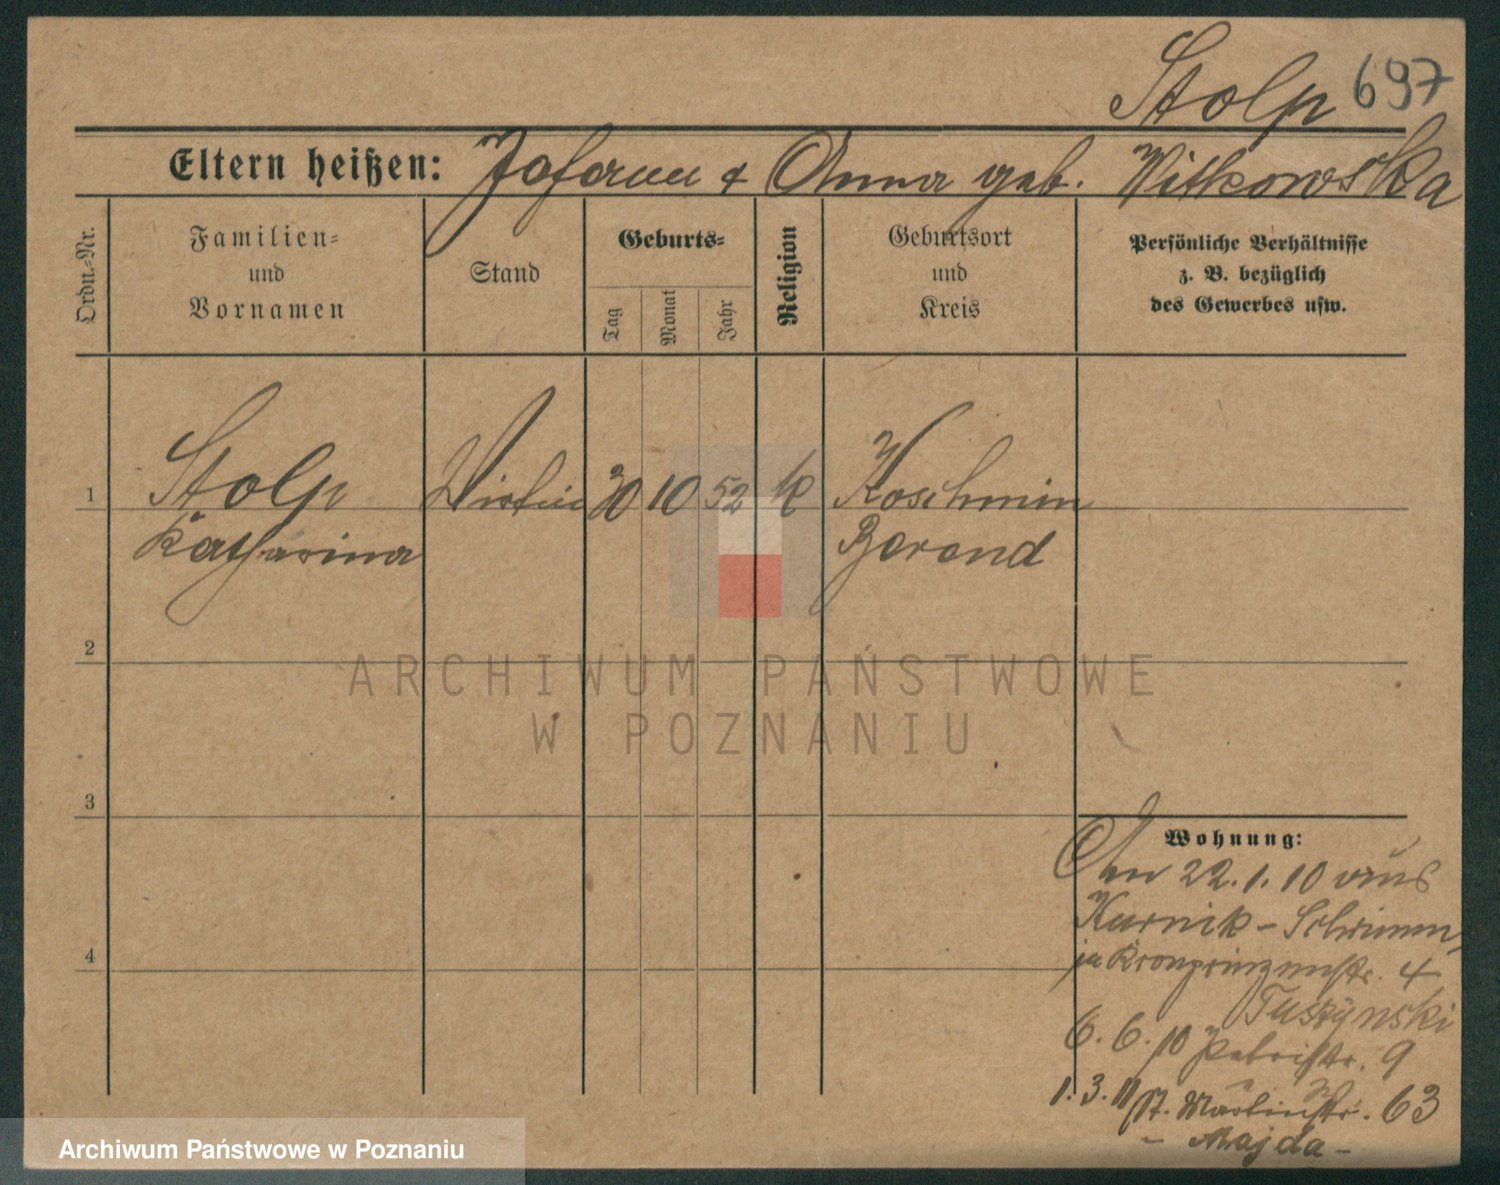 Stolp 697
Eltern heißen: Johann & Anna geb. Witkowska
Ordn.-Nr.
Familien-
und
Vornamen
Stand
Geburts-
Tag
Monat
Jahr
Religion
Geburtsort
und
Kreis
Persönliche Verhältnisse
z. B. bezüglich
des Gewerbes usw.
1 Stolp Wirtin 30 10 52 k Koschmin
Katharina
2
3
4
Wohnung:
Am 22.1.10 aus
Kurnik - Schrimm
in Kronprinzenstr. 4
Tuszynski
6.6.10 9
1.3.11 St. Martinstr. 63
- Majda -
ARCHIWUM PAŃSTWOWE
W POZNANIU
Archiwum Państwowe w Poznaniu